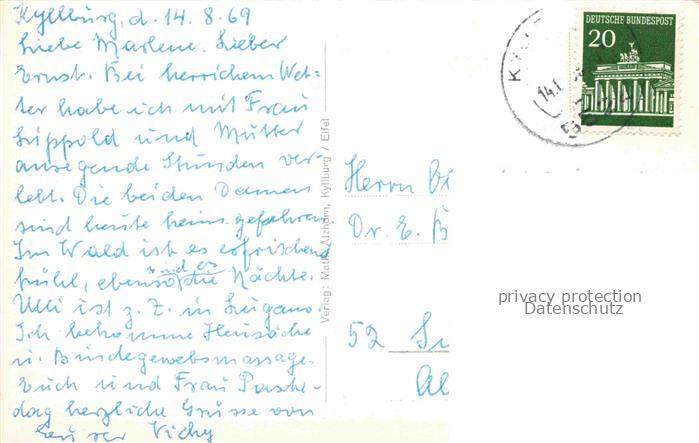 Kyllburg, d. 14.8.69
Liebe Marlene. Lieber
Ernst. Bei herrlichem Wet-
ter habe ich mit Frau
Lippold und Mutter
anregende Stunden ver-
lebt. Die beiden Damen
sind heute heim gefahren
Im Wald ist es erfrischend
kühl, ebenso sind es die Nächte.
Ulli ist z. Z. in Lugano
Ich bekomme Heusäcke
u. Bindegewebsmassage.
Euch und Frau
dag herzliche Grüsse von
Vichy
Verlag: Math. Alzhorn, Kyllburg / Eifel
DEUTSCHE BUNDESPOST
20
14.
Herrn
Dr. E.
52
privacy protection
Datenschutz